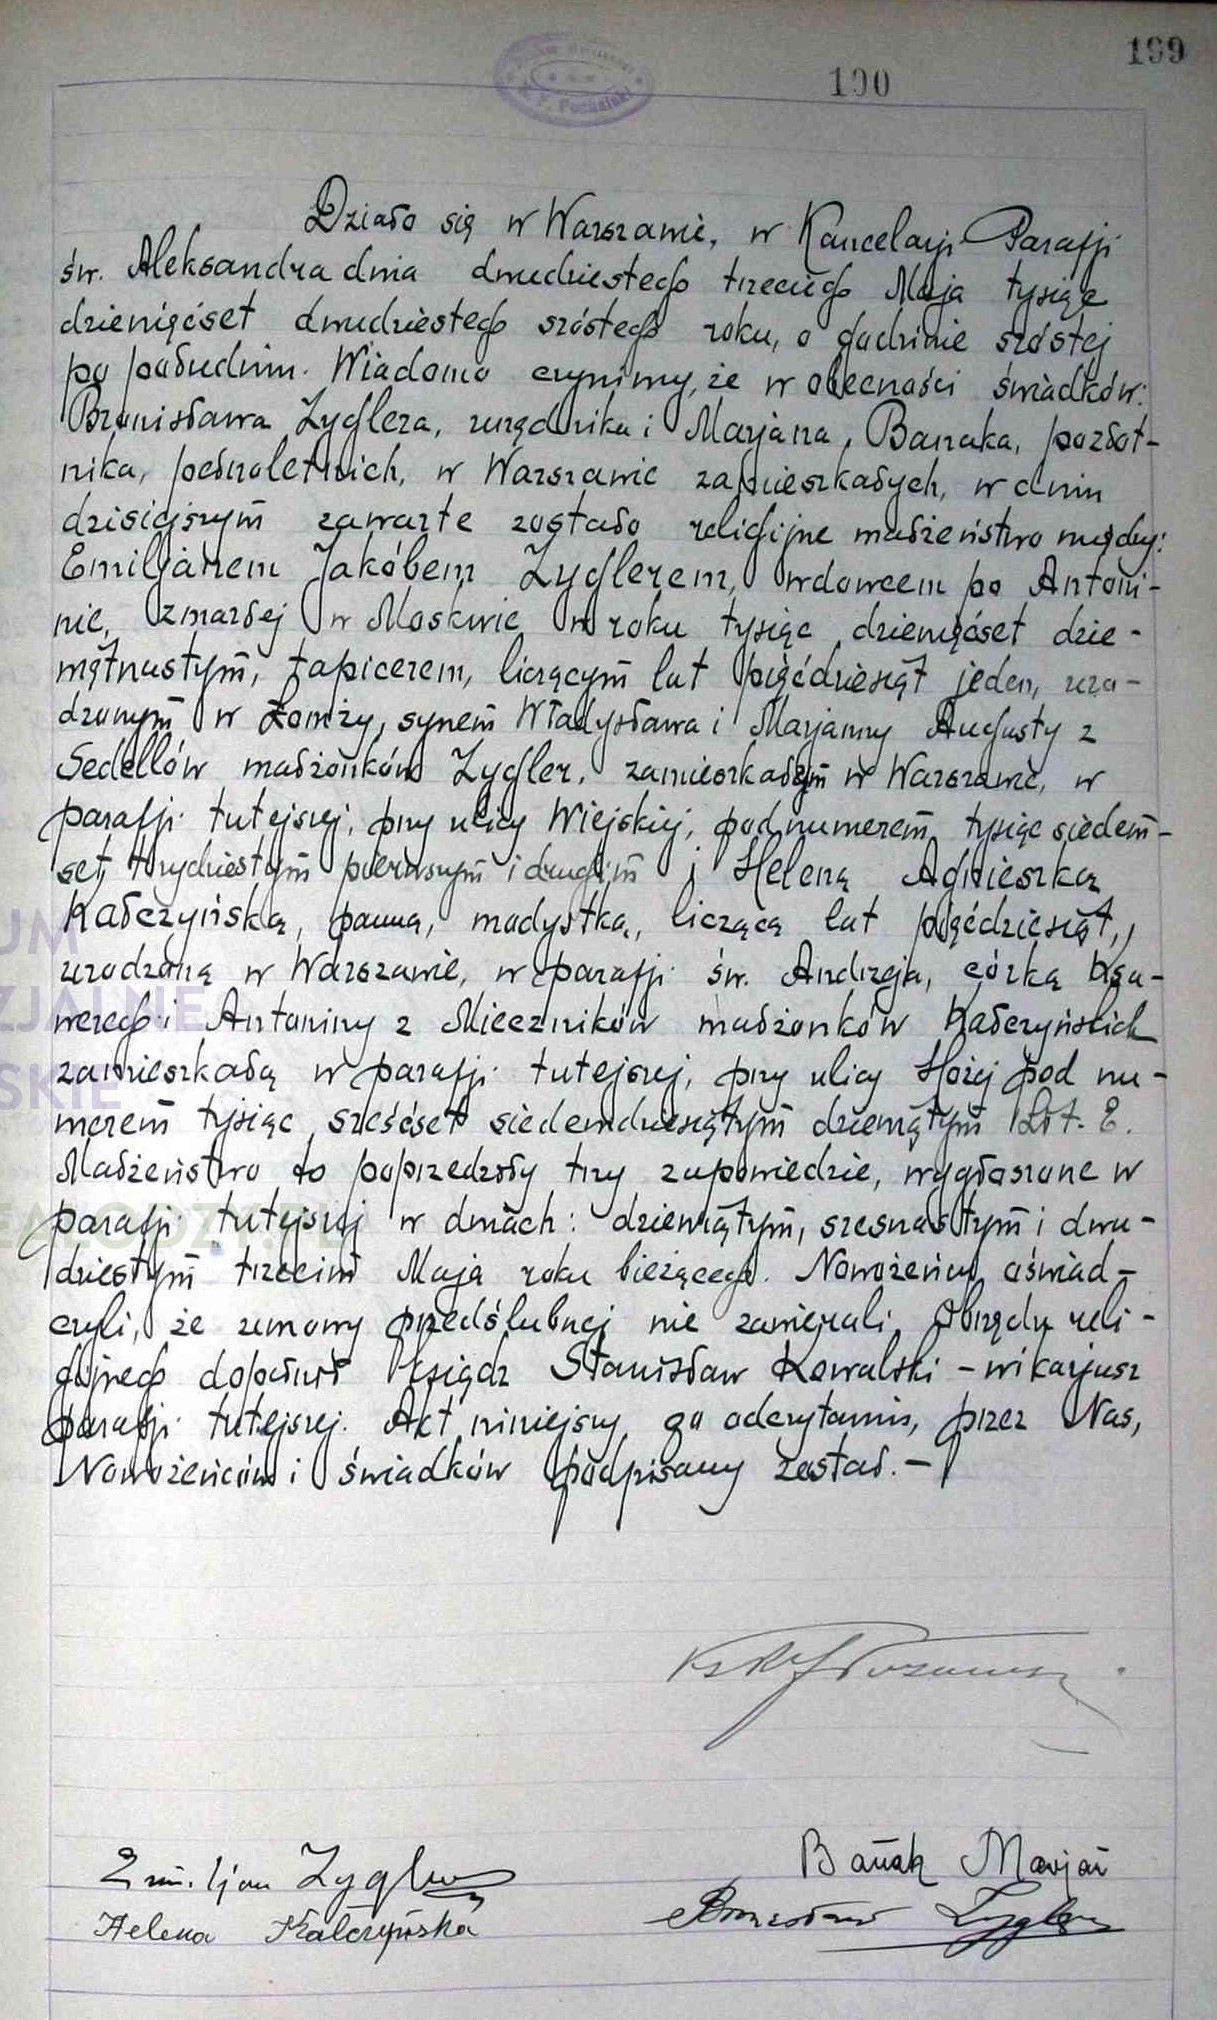 199
190
Działo się w Warszawie, w Kancelarji Parafji
św. Aleksandra dnia dwudziestego trzeciego Maja tysiąc
dziewięćset dwudziestego szóstego roku, o godzinie szóstej
po południu. Wiadomo czynimy, że w obecności świadków:
Bronisława Zyglera, urzędnika i Marjana Banaka, pozłot-
nika, pełnoletnich, w Warszawie zamieszkałych, w dniu
dzisiejszym zawarte zostało religijne małżeństwo między:
Emiljanem Jakóbem Zyglerem, wdowcem po Antoni-
nie, zmarłej w Moskwie w roku tysiąc dziewięćset dzie-
więtnastym, tapicerem, liczącym lat pięćdziesiąt jeden, uro-
dzonym w Łomży, synem Władysława i Marjanny Augusty z
Sedellów małżonków Zygler, zamieszkałym w Warszawie, w
parafji tutejszej, przy ulicy Wiejskiej, pod numerem tysiąc siedem-
set trzydziestym pierwszym i drugim i Heleną Agnieszką
Kałczyńską, panną, modystką, liczącą lat pięćdziesiąt,
urodzoną w Warszawie, w parafji św. Andrzeja, córką Ksa-
werego i Antoniny z Mieczników małżonków Kałczyńskich
zamieszkałą w parafji tutejszej, przy ulicy Hożej pod nu-
merem tysiąc sześćset siedemdziesiątym dziewiątym Lit. E.
Małżeństwo to poprzedziły trzy zapowiedzie, wygłoszone w
parafji tutejszej w dniach: dziewiątym, szesnastym i dwu-
dziestym trzecim Maja roku bieżącego. Nowożeńcy oświad-
czyli, że umowy przedślubnej nie zawierali. Obrzędu reli-
gijnego dopełnił ksiądz Stanisław Kowalski - wikarjusz
parafji tutejszej. Akt niniejszy, po odczytaniu, przez Nas,
Nowożeńców i świadków podpisany został. -
Banak Marjan
Emiljan Zygler
Bronisław Zygler
Helena Kałczyńska